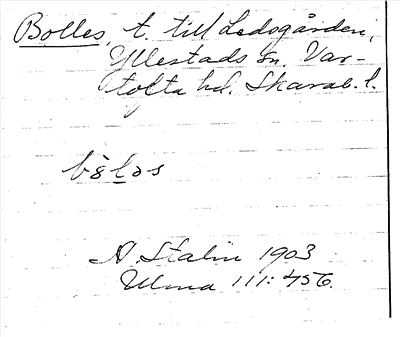 Bolles, t. till Ledsgården,
Yllestads sn. Var-
tofta hd. Skarab. l.
A. Stalin 1903
Ulma 111: 456.